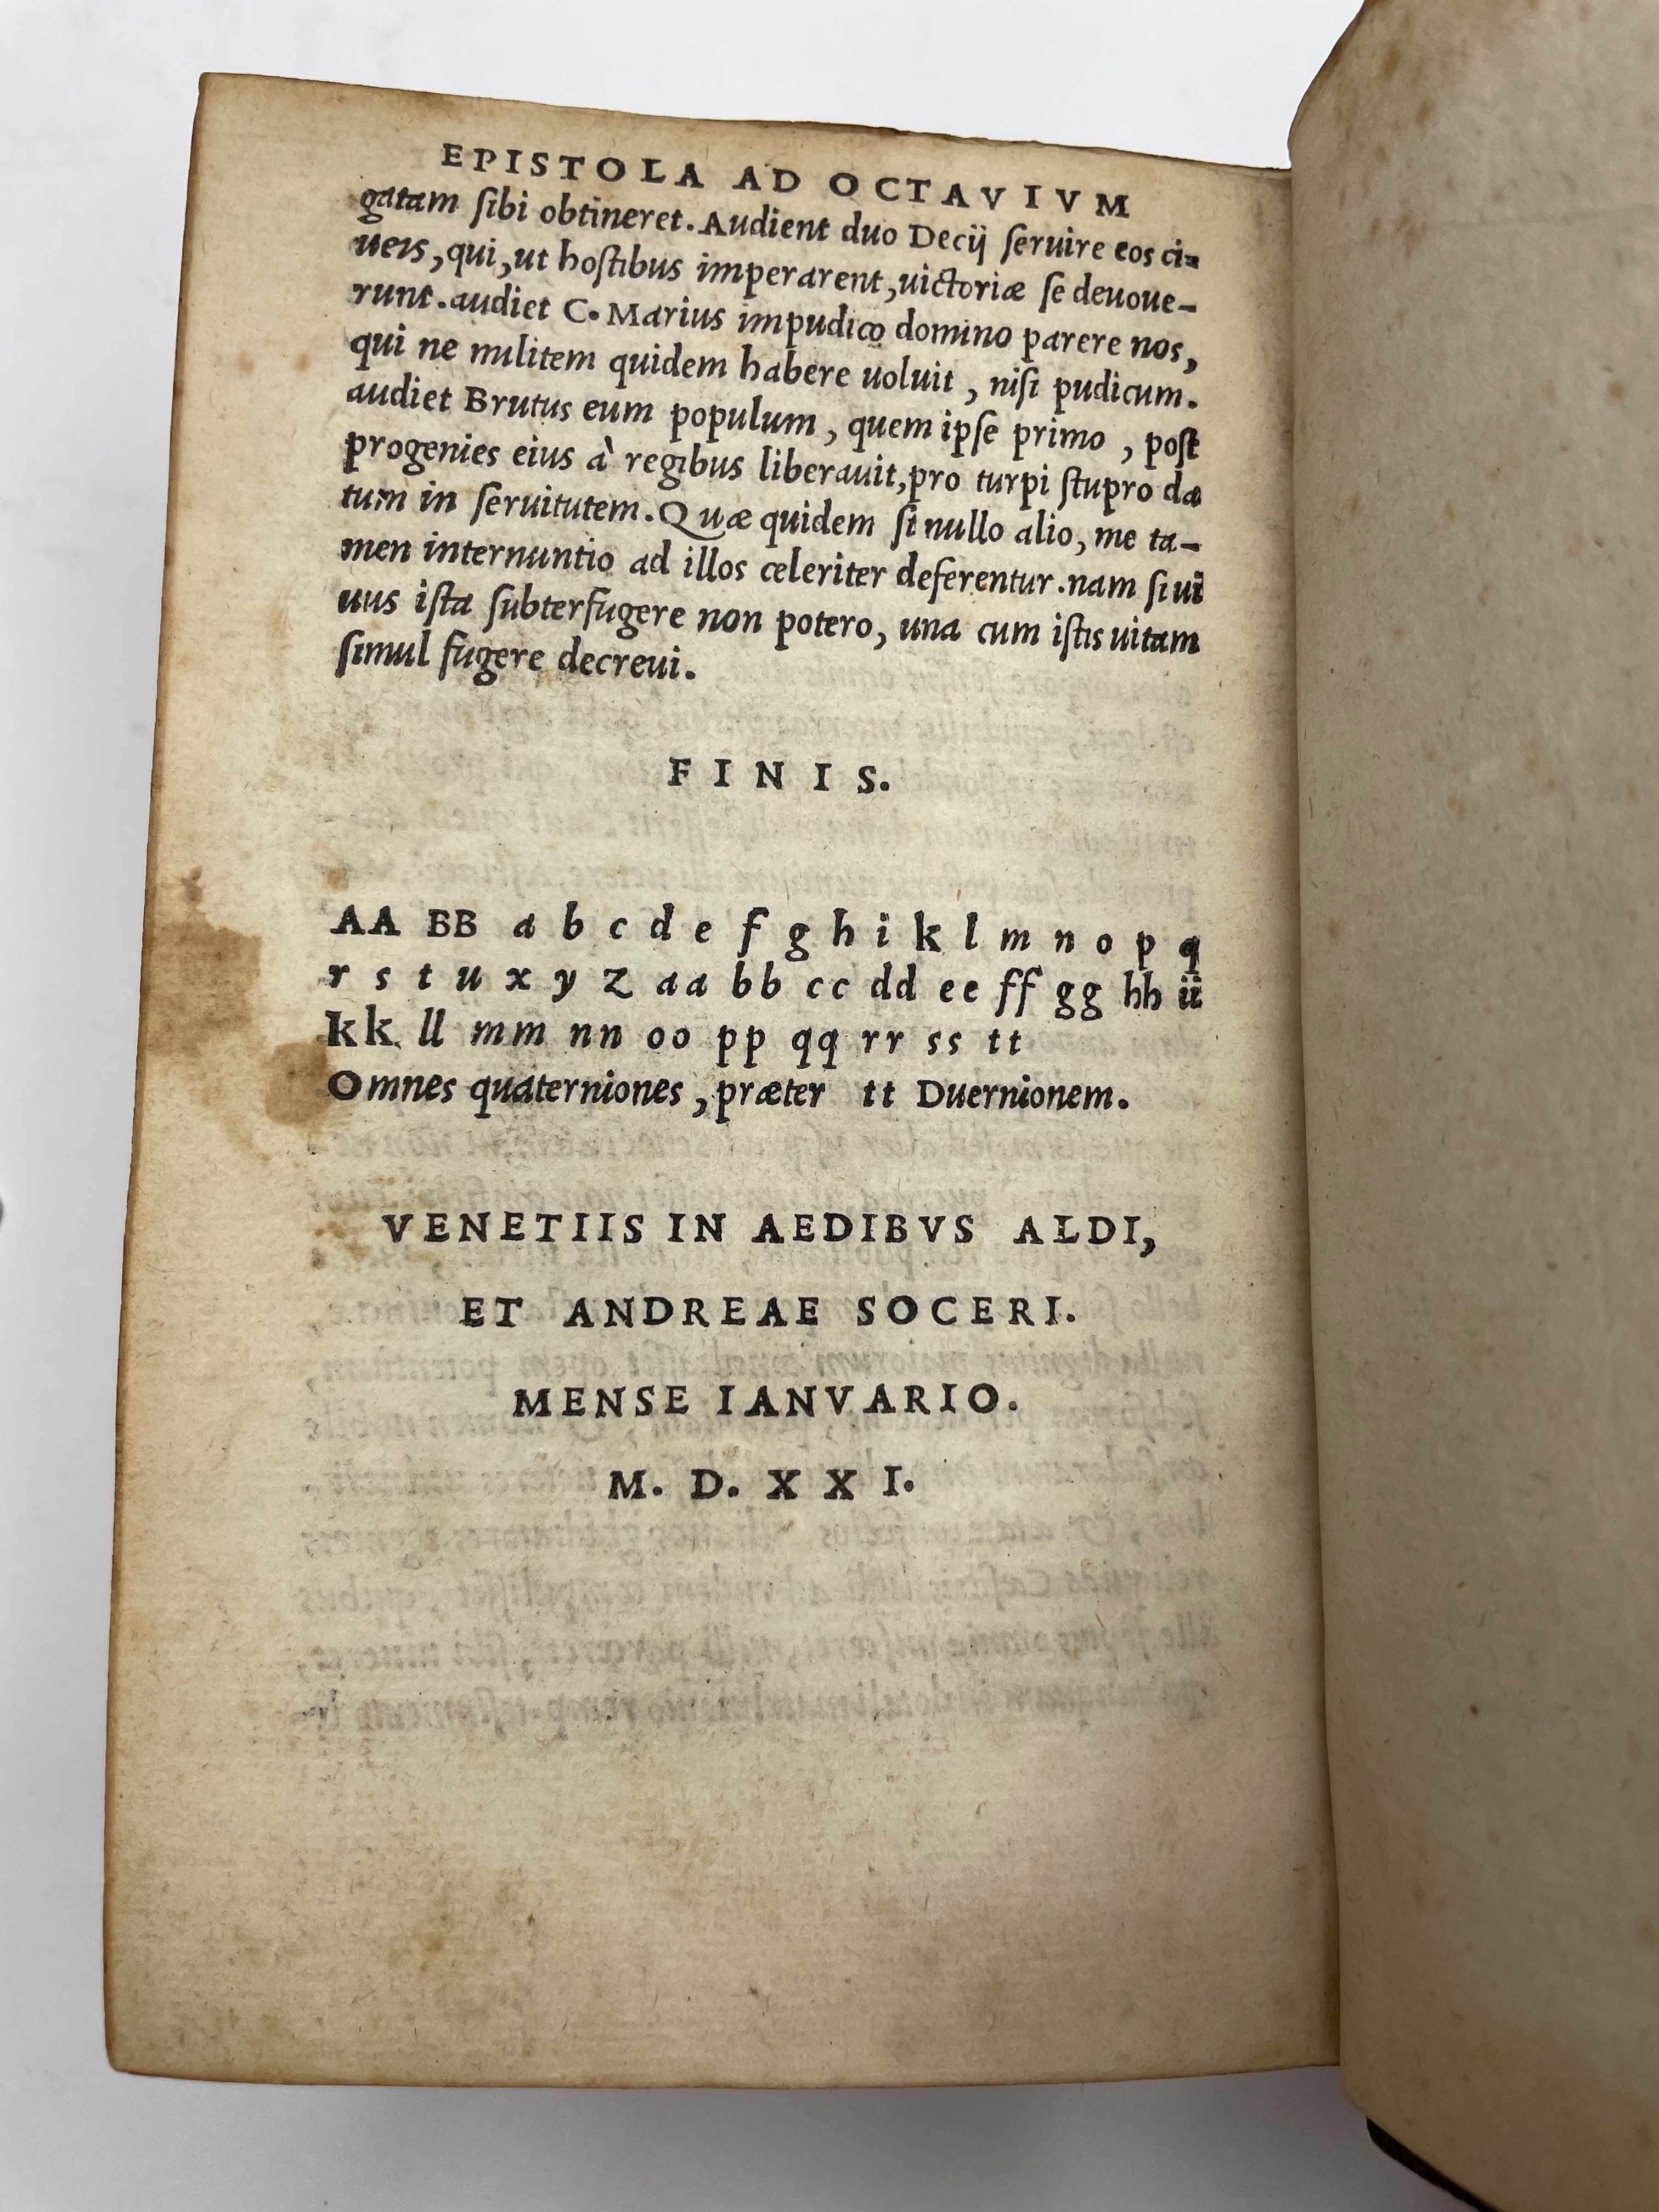 EPISTOLA AD OCTAVIVM
gatam ſibi obtineret. Audient duo Decij ſeruire eos ci=
ueis, qui, ut hoſtibus imperarent, uictoriæ ſe deuoue-
runt. audiet C. Marius impudico domino parere nos,
qui ne militem quidem habere uoluit, niſi pudicum.
audiet Brutus eum populum, quem ipſe primo, poſt
progenies eius à regibus liberauit, pro turpi ſtupro da
tum in ſeruitutem. Quæ quidem ſi nullo alio, me ta-
men internuntio ad illos celeriter deferentur. nam ſi ui
uus iſta ſubterfugere non potero, una cum iſtis uitam
ſimul fugere decreui.
FINIS.
AA BB a b c d e f g h i k l m n o p q
r s t u x y z aa bb cc dd ee ff gg hh ii
kk ll mm nn oo pp qq rr ss tt
Omnes quaterniones, præter tt Duernionem.
VENETIIS IN AEDIBVS ALDI,
ET ANDREAE SOCERI.
MENSE IANVARIO.
M. D. XXI.